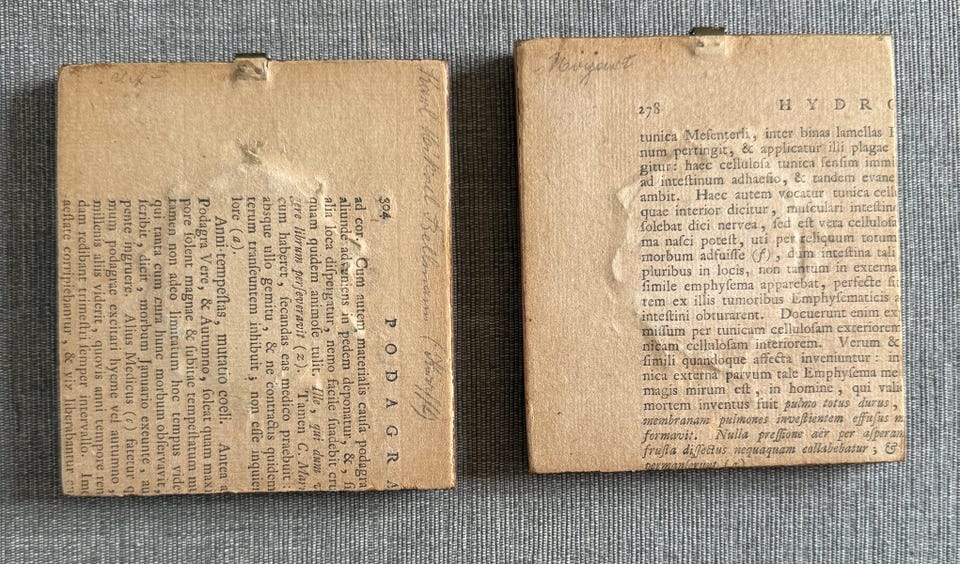 Karl Mikael Bellmann
304 PODAGRA
ad cor. Cum autem materialis cauſa podagra
aliunde adveniens in pedem deponatur, &, ſi
alia loca diſpergatur, nemo facile ſuadebit cru
quam quidem animoſe tulit. Ille, qui dum v
zere librum perſeveravit (z). Tamen C. Mari
cum haberet, ſecandas eas medico præbuit:
absque ullo gemitu, & ne contractis quidem
terum tranſeuntem inhibuit, non eſſe inquien
lore (a).
Anni tempeſtas, mutatio coeli. Antea a
Podagra Vere, & Autumno, ſoleat quam maxi
pore ſolent magnæ & ſubitæ tempeſtatum m
tamen non adeo limitatum hoc tempus vide
qui tanta cum cura hunc morbum obſervavit,
ſcribit, dicit, morbum Januario exeunte, au
pente ingruere. Alius Medicus (c) fatetur q
mum podagræ excitari hyeme vel autumno,
millenis aliis viderit, quovis anni tempore ren
dam redibant trimeſtri ſemper intervallo. Imo
æſtate corripiebantur, & vix liberabantur
Mozart
278 HYDRO
tunica Meſenterii, inter binas lamellas
num pertingit, & applicatur illi plagæ
gitur: hæc celluloſa tunica ſenſim immi
ad inteſtinum adhaeſio, & tandem evane
ambit. Hæc autem vocatur tunica cell
quæ interior dicitur, muſculari inteſtino
ſolebat dici nervea, ſed eſt vera celluloſa
ma naſci poteſt, uti per reliquum totum
morbum adfuiſſe (f), dum inteſtina tali
pluribus in locis, non tantum in externa
ſimile emphyſema apparebat, perfecte ſi
rem ex illis tumoribus Emphyſematicis a
inteſtini obturarent. Docuerunt enim ex
miſſum per tunicam celluloſam exteriorem
nicam celluloſam interiorem. Verum &
ſimili quandoque affecta inveniuntur: in
nica externa parvum tale Emphyſema me
magis mirum eſt, in homine, qui vali
mortem inventus fuit pulmo totus durus,
membranam pulmones inveſtientem effuſus
formavit. Nulla preſſione aër per aſperam
fruſta diſſectus nequaquam collabebatur; &
permanſerunt